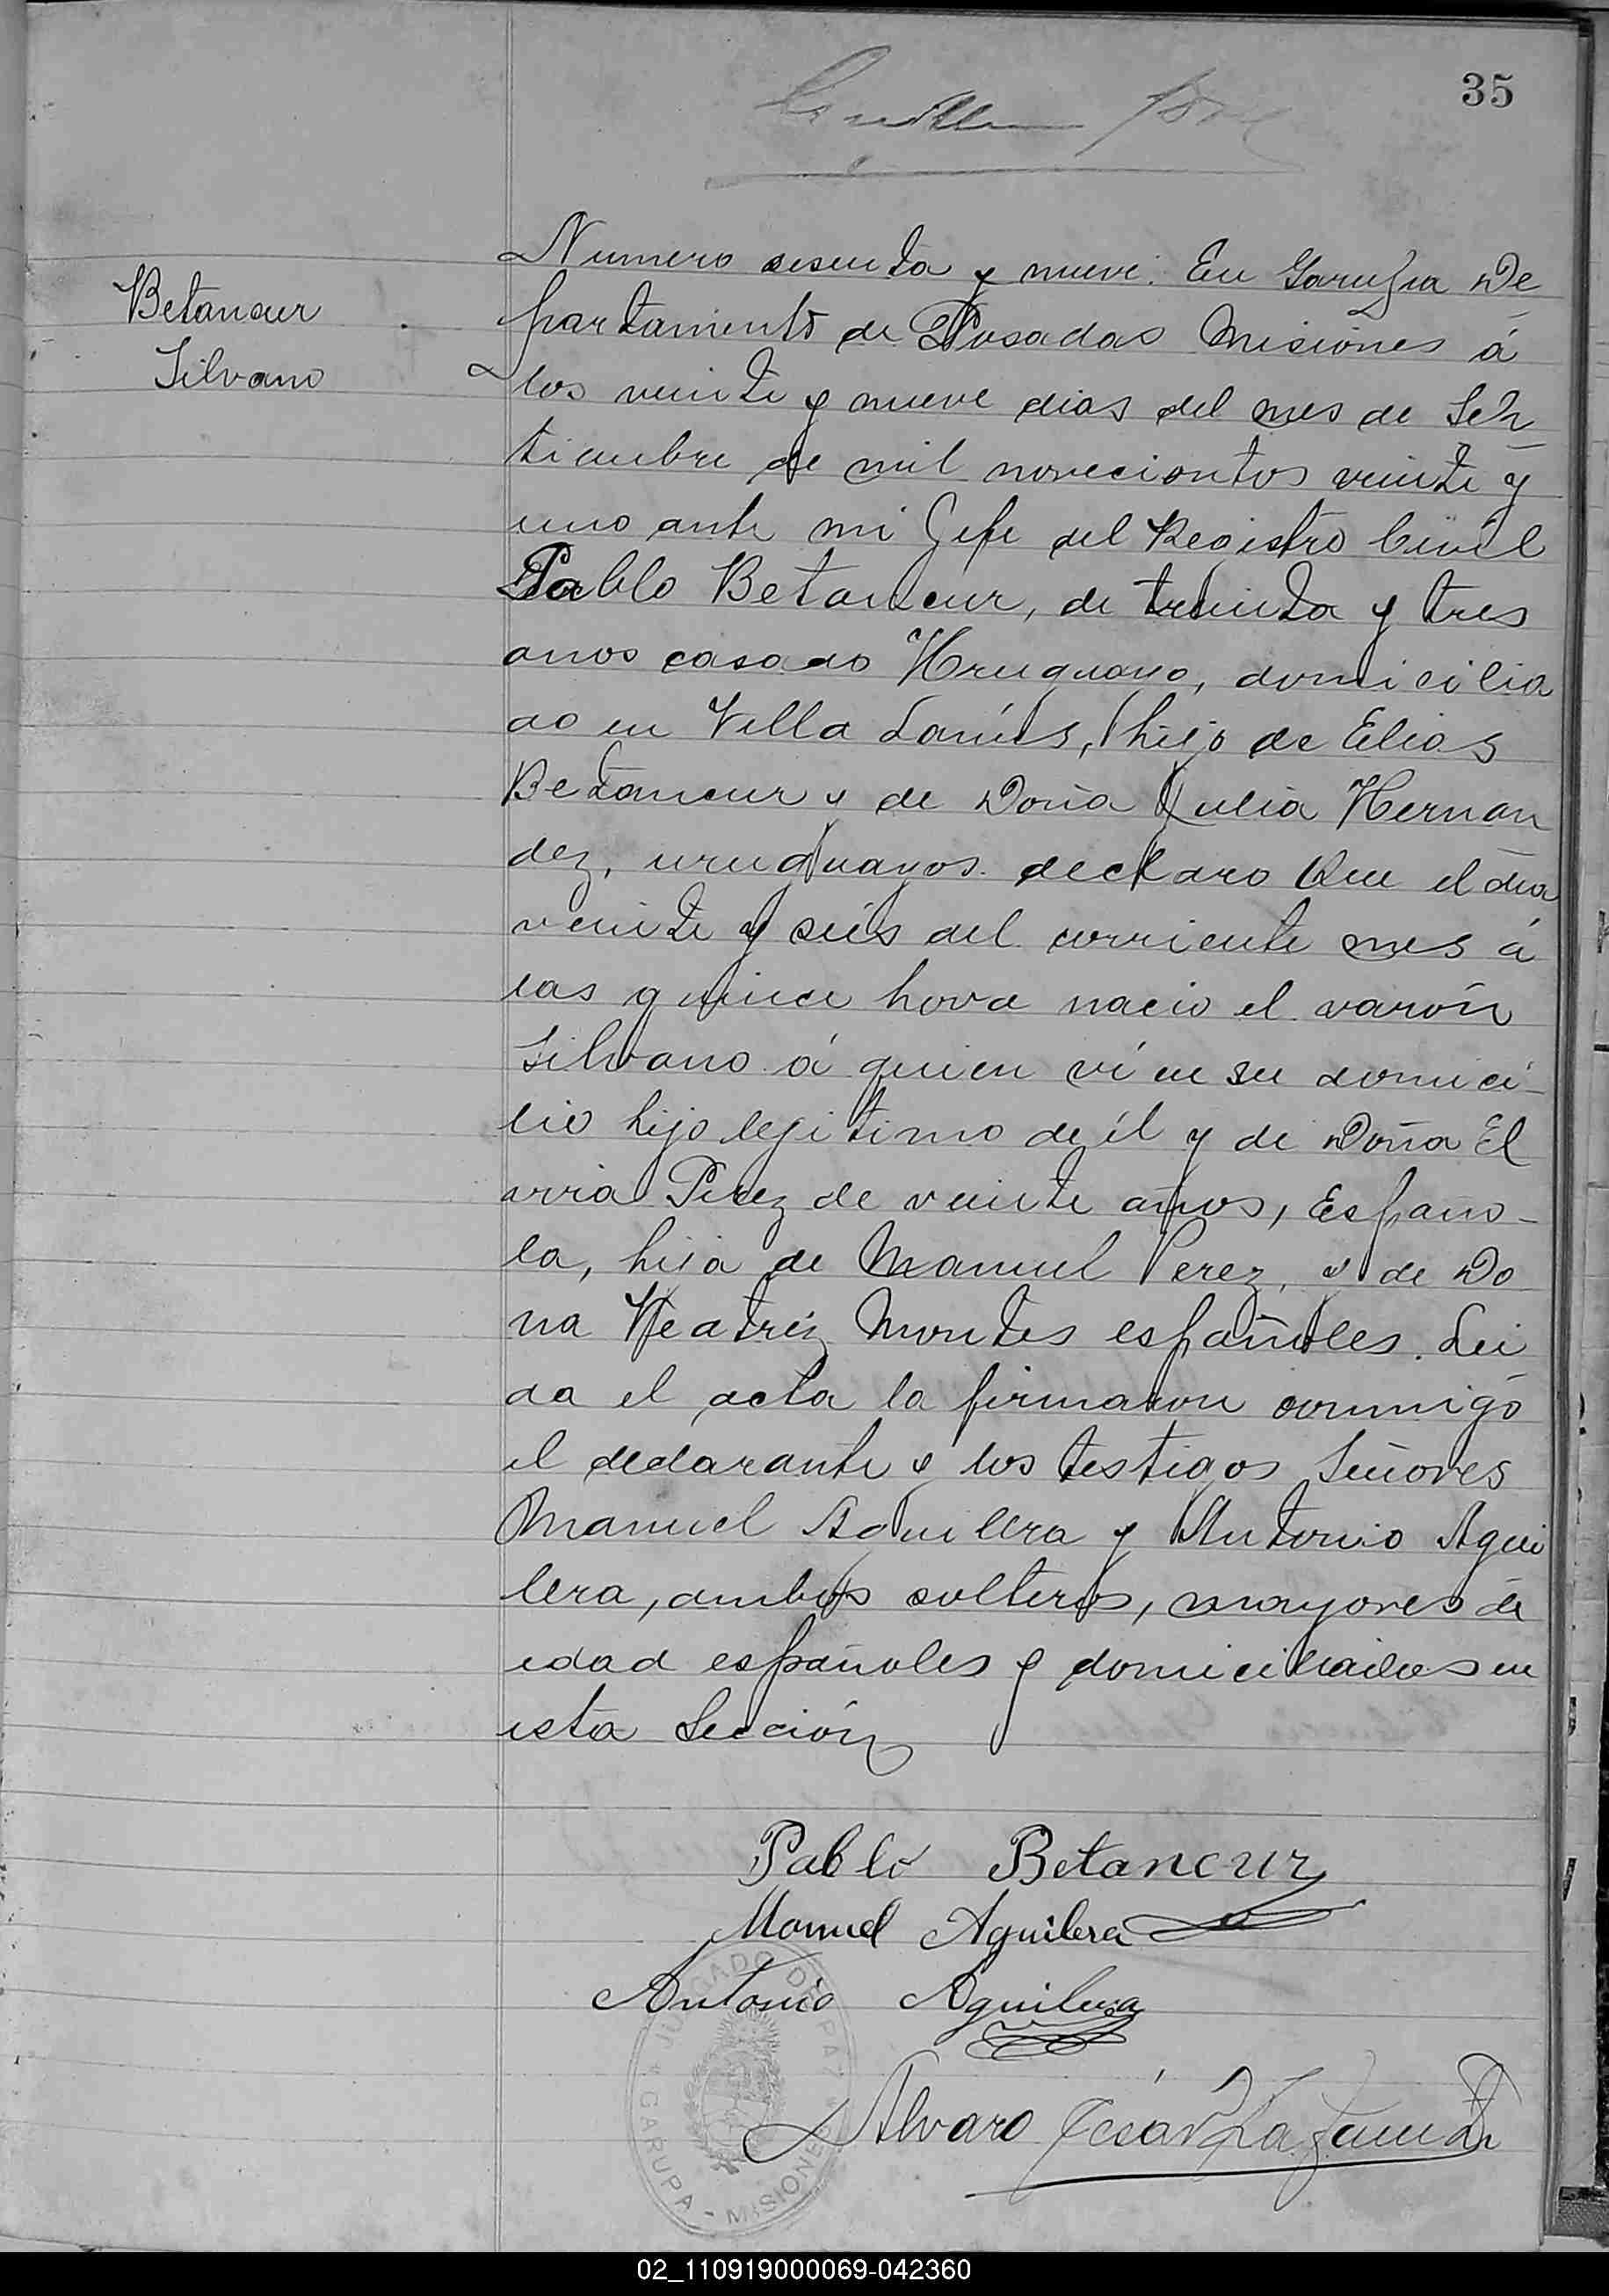 35
Betancur
Silvano
Numero sesenta y nueve. En Garupa De
partamento de Posadas Misiones á
los veinte y nueve dias del mes de Sep
tiembre de mil novecientos veinte y
uno ante mi Gefe del Registro Civil
Pablo Betancur, de treinta y tres
anos casado Uruguayo, domicilia
do en Villa Lanús, hijo de Elias
Betancur y de Doña Julia Hernan
dez, uruguayos. declaro Que el dia
veinte y seis del corriente mes á
las quince hora nacio el varón
Silvano á quien ví en su domici-
lio hijo legitimo de él y de Doña El
vira Perez de veinte años, Españo-
la, hija de Manuel Perez, y de Do
na Beatriz Montes españoles. Lei
da el acta la firmaron conmigo
el declarante y los testigos Señores
Manuel Aguilera y Antonio Agui
lera, ambos solteros, mayores de
edad españoles y domiciliados en
esta Sección
Pablo Betancur
Manuel Aguilera
Antonio Aguilera
JUZGADO DE PAZ
GARUPA - MISIONES
Alvaro César
02_110919000069-042360